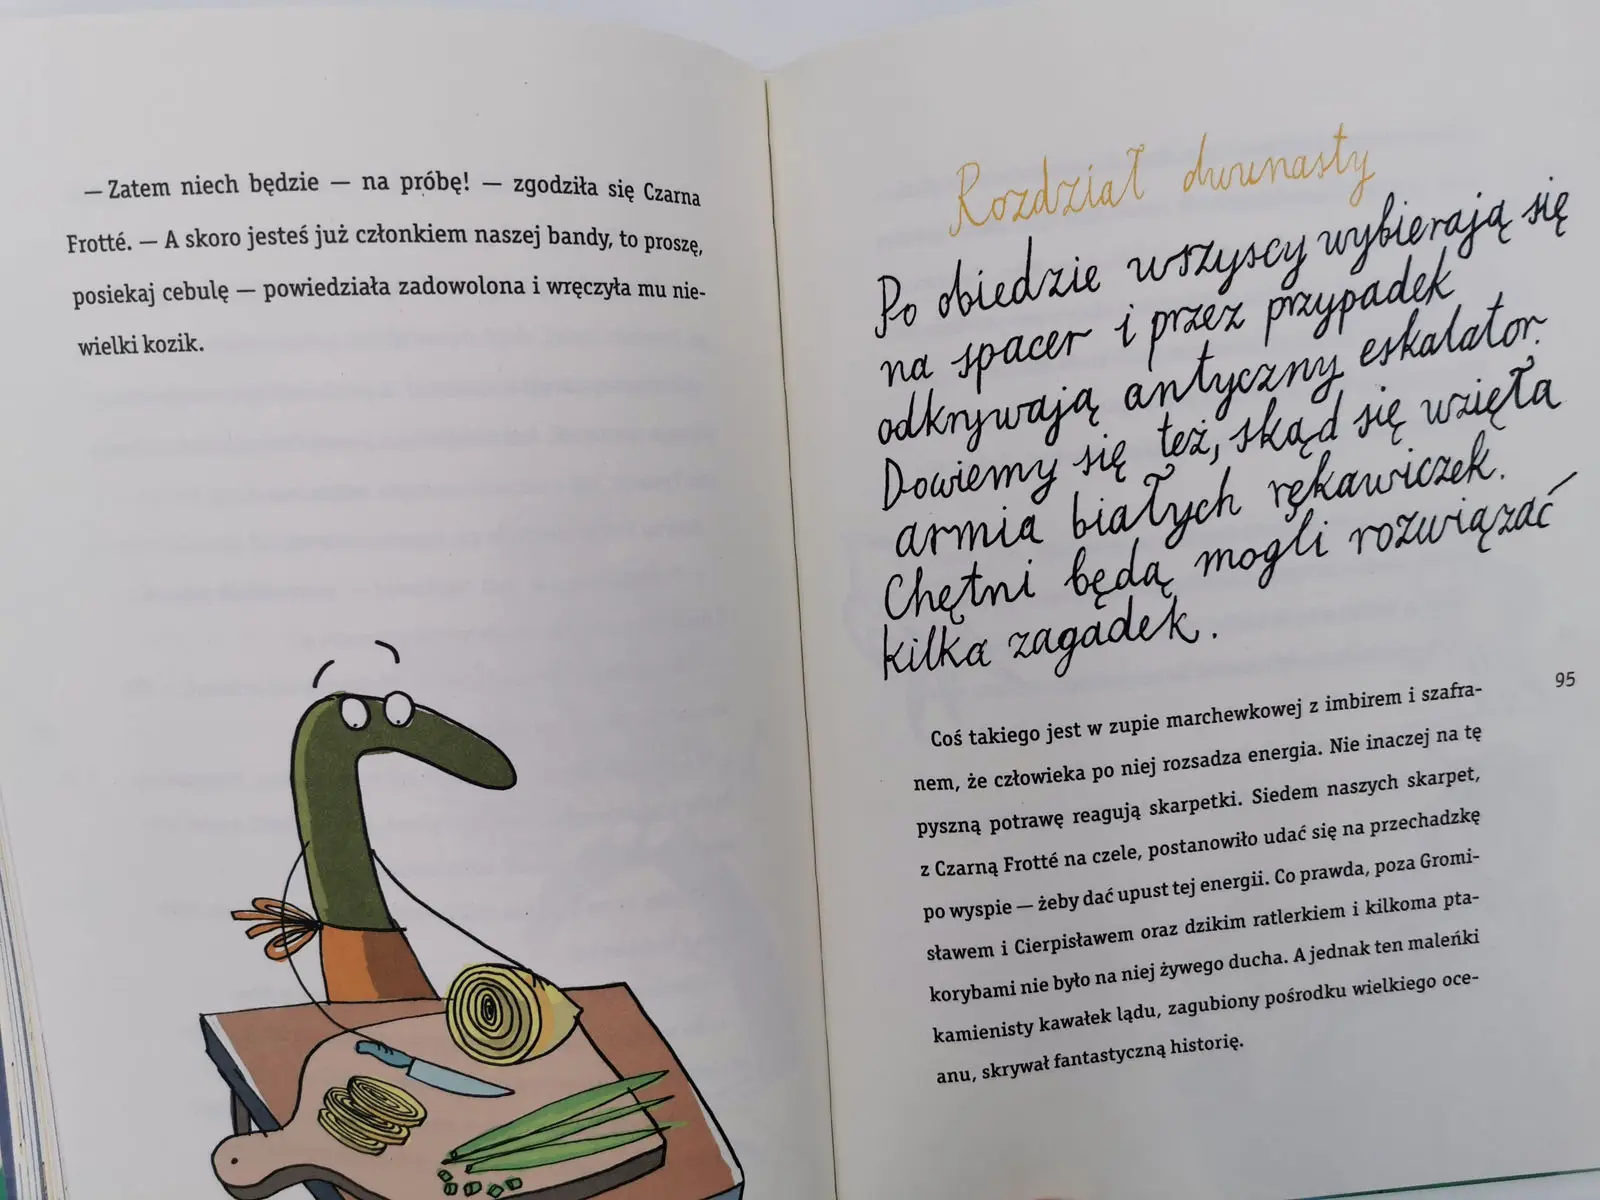 — Zatem niech będzie — na próbę! — zgodziła się Czarna
Frotté. — A skoro jesteś już członkiem naszej bandy, to proszę,
posiekaj cebulę — powiedziała zadowolona i wręczyła mu nie-
wielki kozik.
Rozdział dwunasty
Po obiedzie wszyscy wybierają się
na spacer i przez przypadek
odkrywają antyczny eskalator.
Dowiemy się też, skąd się wzięła
armia białych rękawiczek.
Chętni będą mogli rozwiązać
kilka zagadek.
95
Coś takiego jest w zupie marchewkowej z imbirem i szafra-
nem, że człowieka po niej rozsadza energia. Nie inaczej na tę
pyszną potrawę reagują skarpetki. Siedem naszych skarpet,
z Czarną Frotté na czele, postanowiło udać się na przechadzkę
po wyspie — żeby dać upust tej energii. Co prawda, poza Gromi-
sławem i Cierpisławem oraz dzikim ratlerkiem i kilkoma pta-
korybami nie było na niej żywego ducha. A jednak ten maleńki
kamienisty kawałek lądu, zagubiony pośrodku wielkiego oce-
anu, skrywał fantastyczną historię.